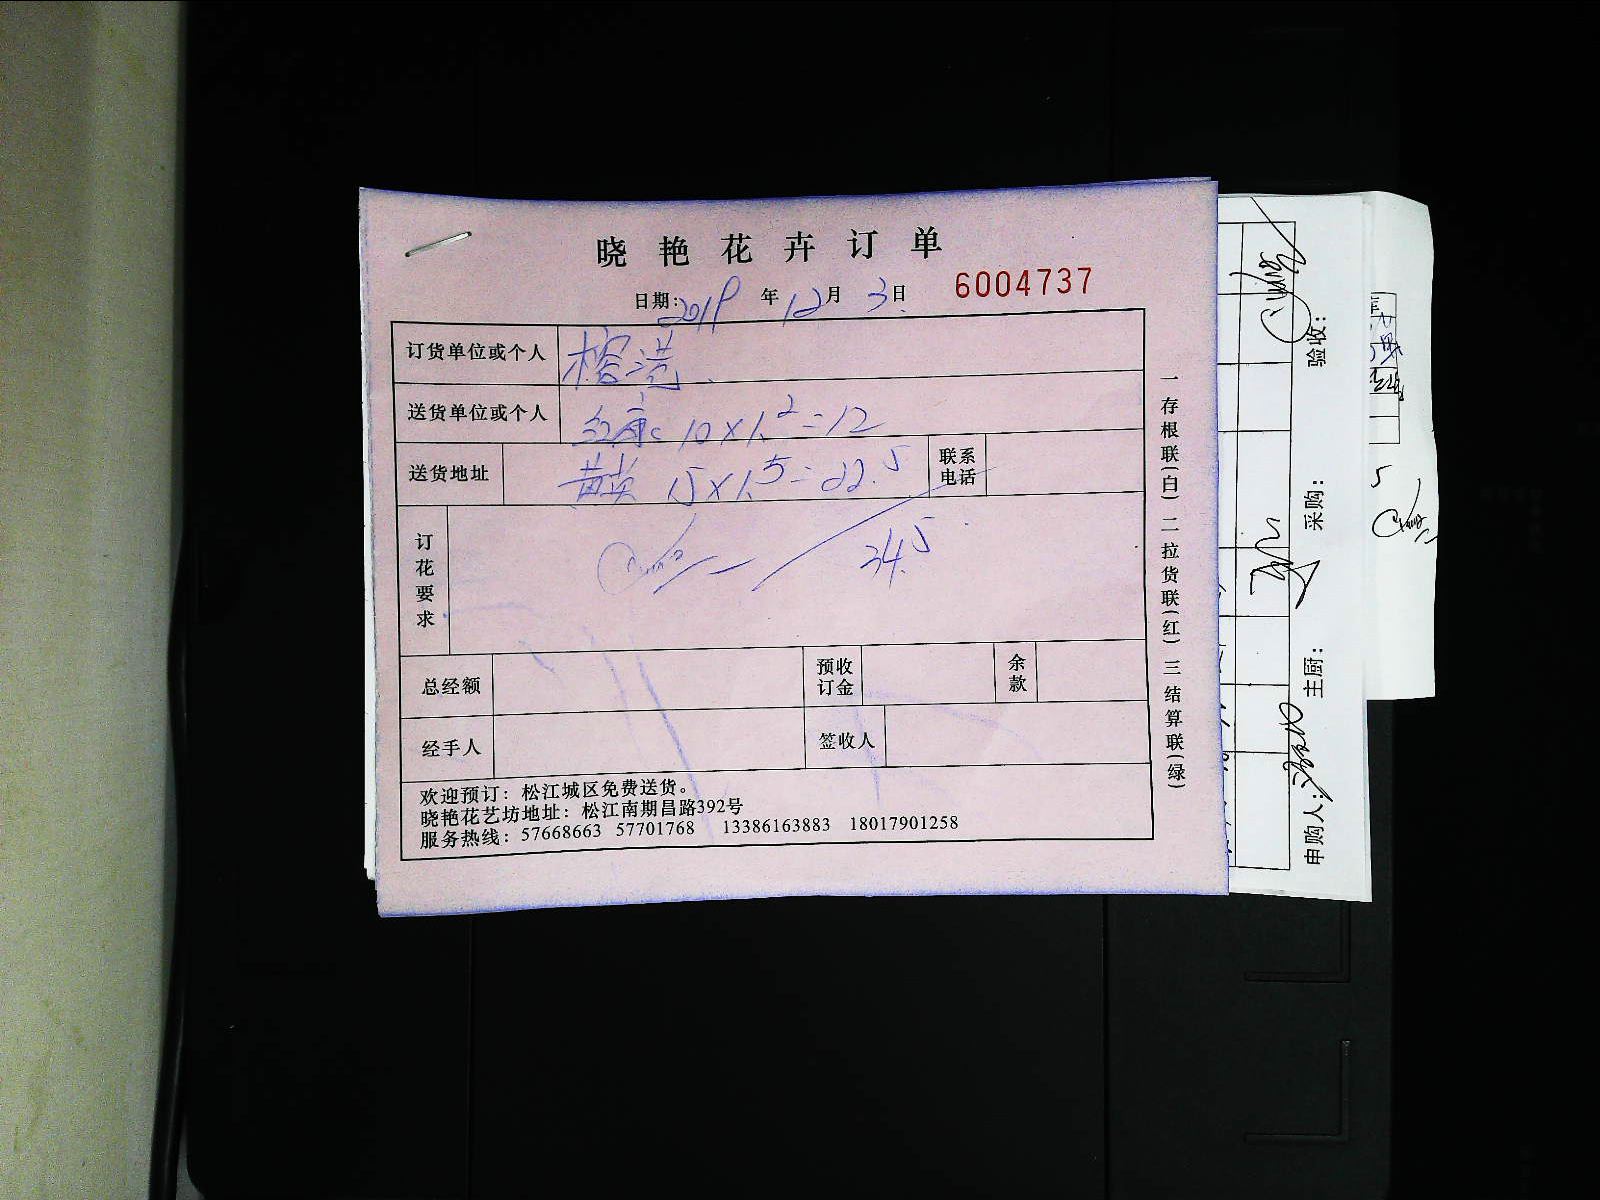 晓艳花卉订单
日期: 2019 年 12 月 3 日 6004737
订货单位或个人 榕港
送货单位或个人 红康 10×1.2=12
送货地址 黄英 15×1.5=22.5 联系电话
订花要求 34.5
总经额 预收订金 余款
经手人 签收人
欢迎预订：松江城区免费送货。
晓艳花艺坊地址：松江南期昌路392号
服务热线：57668663 57701768 13386163883 18017901258
一存根联(白) 二拉货联(红) 三结算联(绿)
申购人: 主厨: 采购: 验收:
5